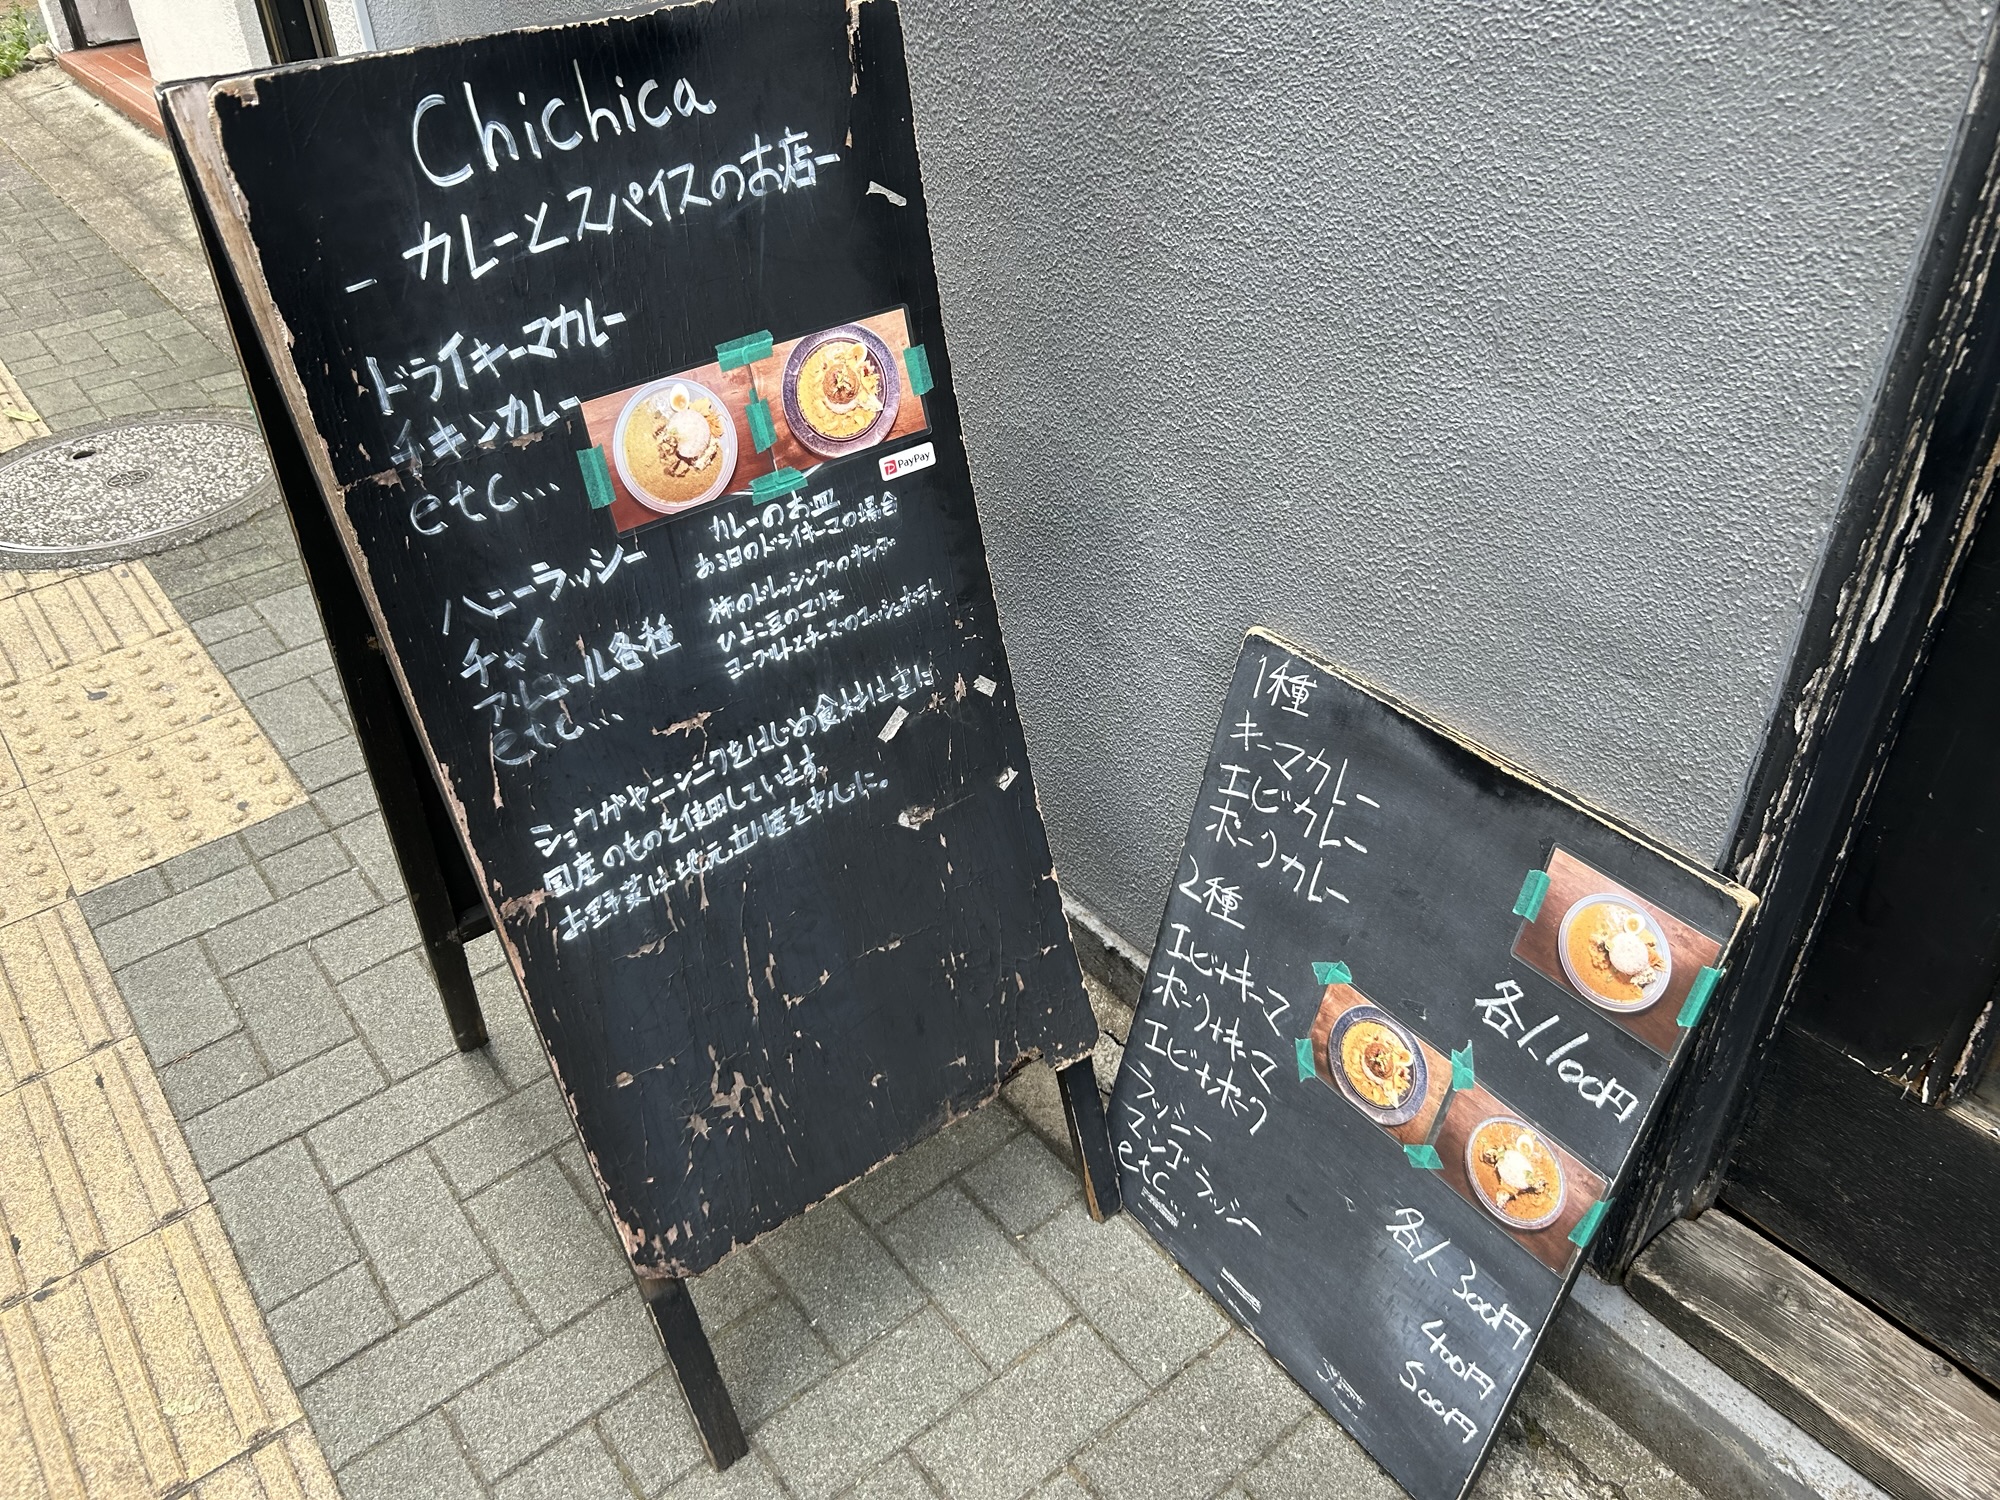 Chichica
- カレーとスパイスのお店-
ドライキーマカレー
チキンカレー
etc...
PayPay
ハニーラッシー
チャイ
アルコール各種
etc...
カレーのお皿
ある日のドライキーマの場合
柿のドレッシングのサラダ
ひよこ豆のマリネ
ヨーグルトとチーズのマッシュポテト
ショウガやニンニクをはじめ食材はほぼ
国産のものを使用しています。
お野菜は地元
を中心に。
1種
キーマカレー
エビカレー
ポークカレー
各1.100円
2種
エビ+キーマ
ポーク+キーマ
エビ+ポーク
各1.300円
ラッシー
400円
マンゴラッシー
500円
etc...